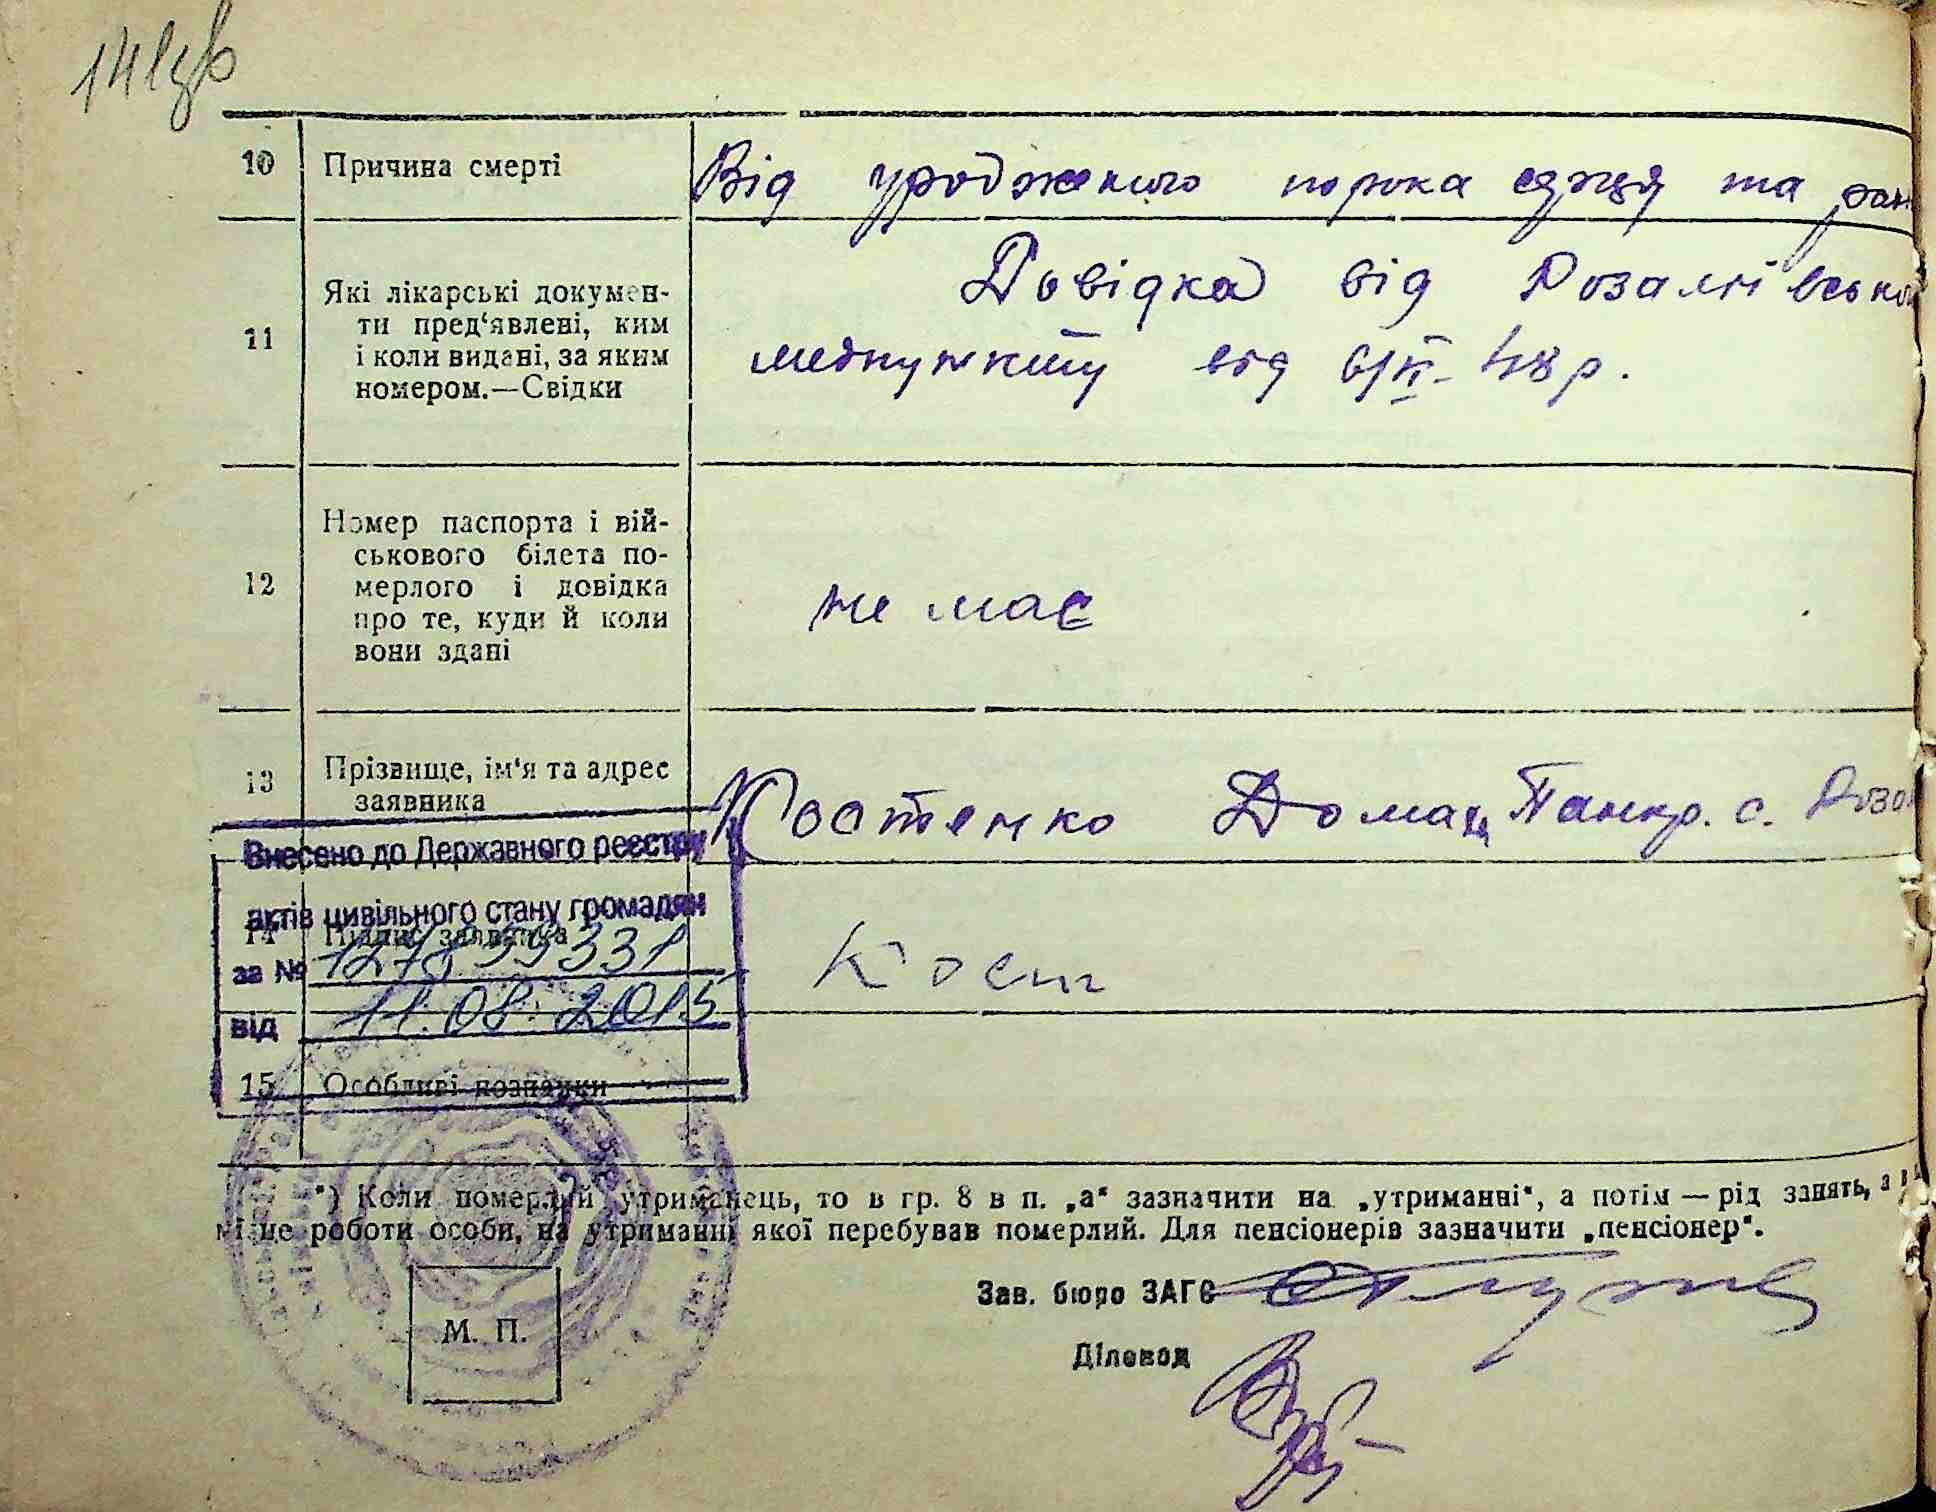 14
10 Причина смерті Від уродженого порока сердця та ран
11 Які лікарські докумен-
ти пред‘явлені, ким
і коли видані, за яким
номером.—Свідки
Довідка від Розаліївсько
медпункту від 6/VI-48 р.
12 Номер паспорта і вій-
ськового білета по-
мерлого і довідка
про те, куди й коли
вони здані
не має
13 Прізвище, ім‘я та адрес
заявника
Костенко Домах Панкр. с. Розал
14 Підпис заявника
Кост
Внесено до Державного реєстру
актів цивільного стану громадян
за №
від 11.08.2015
15 Особливі познач­ки
*) Коли померлий утриманець, то в гр. 8 в п. „а“ зазначити на „утриманні“, а потім — рід занять, а в
місце роботи особи, на утриманні якої перебував померлий. Для пенсіонерів зазначити „пенсіонер“.
М. П.
Зав. бюро ЗАГС
Діловод